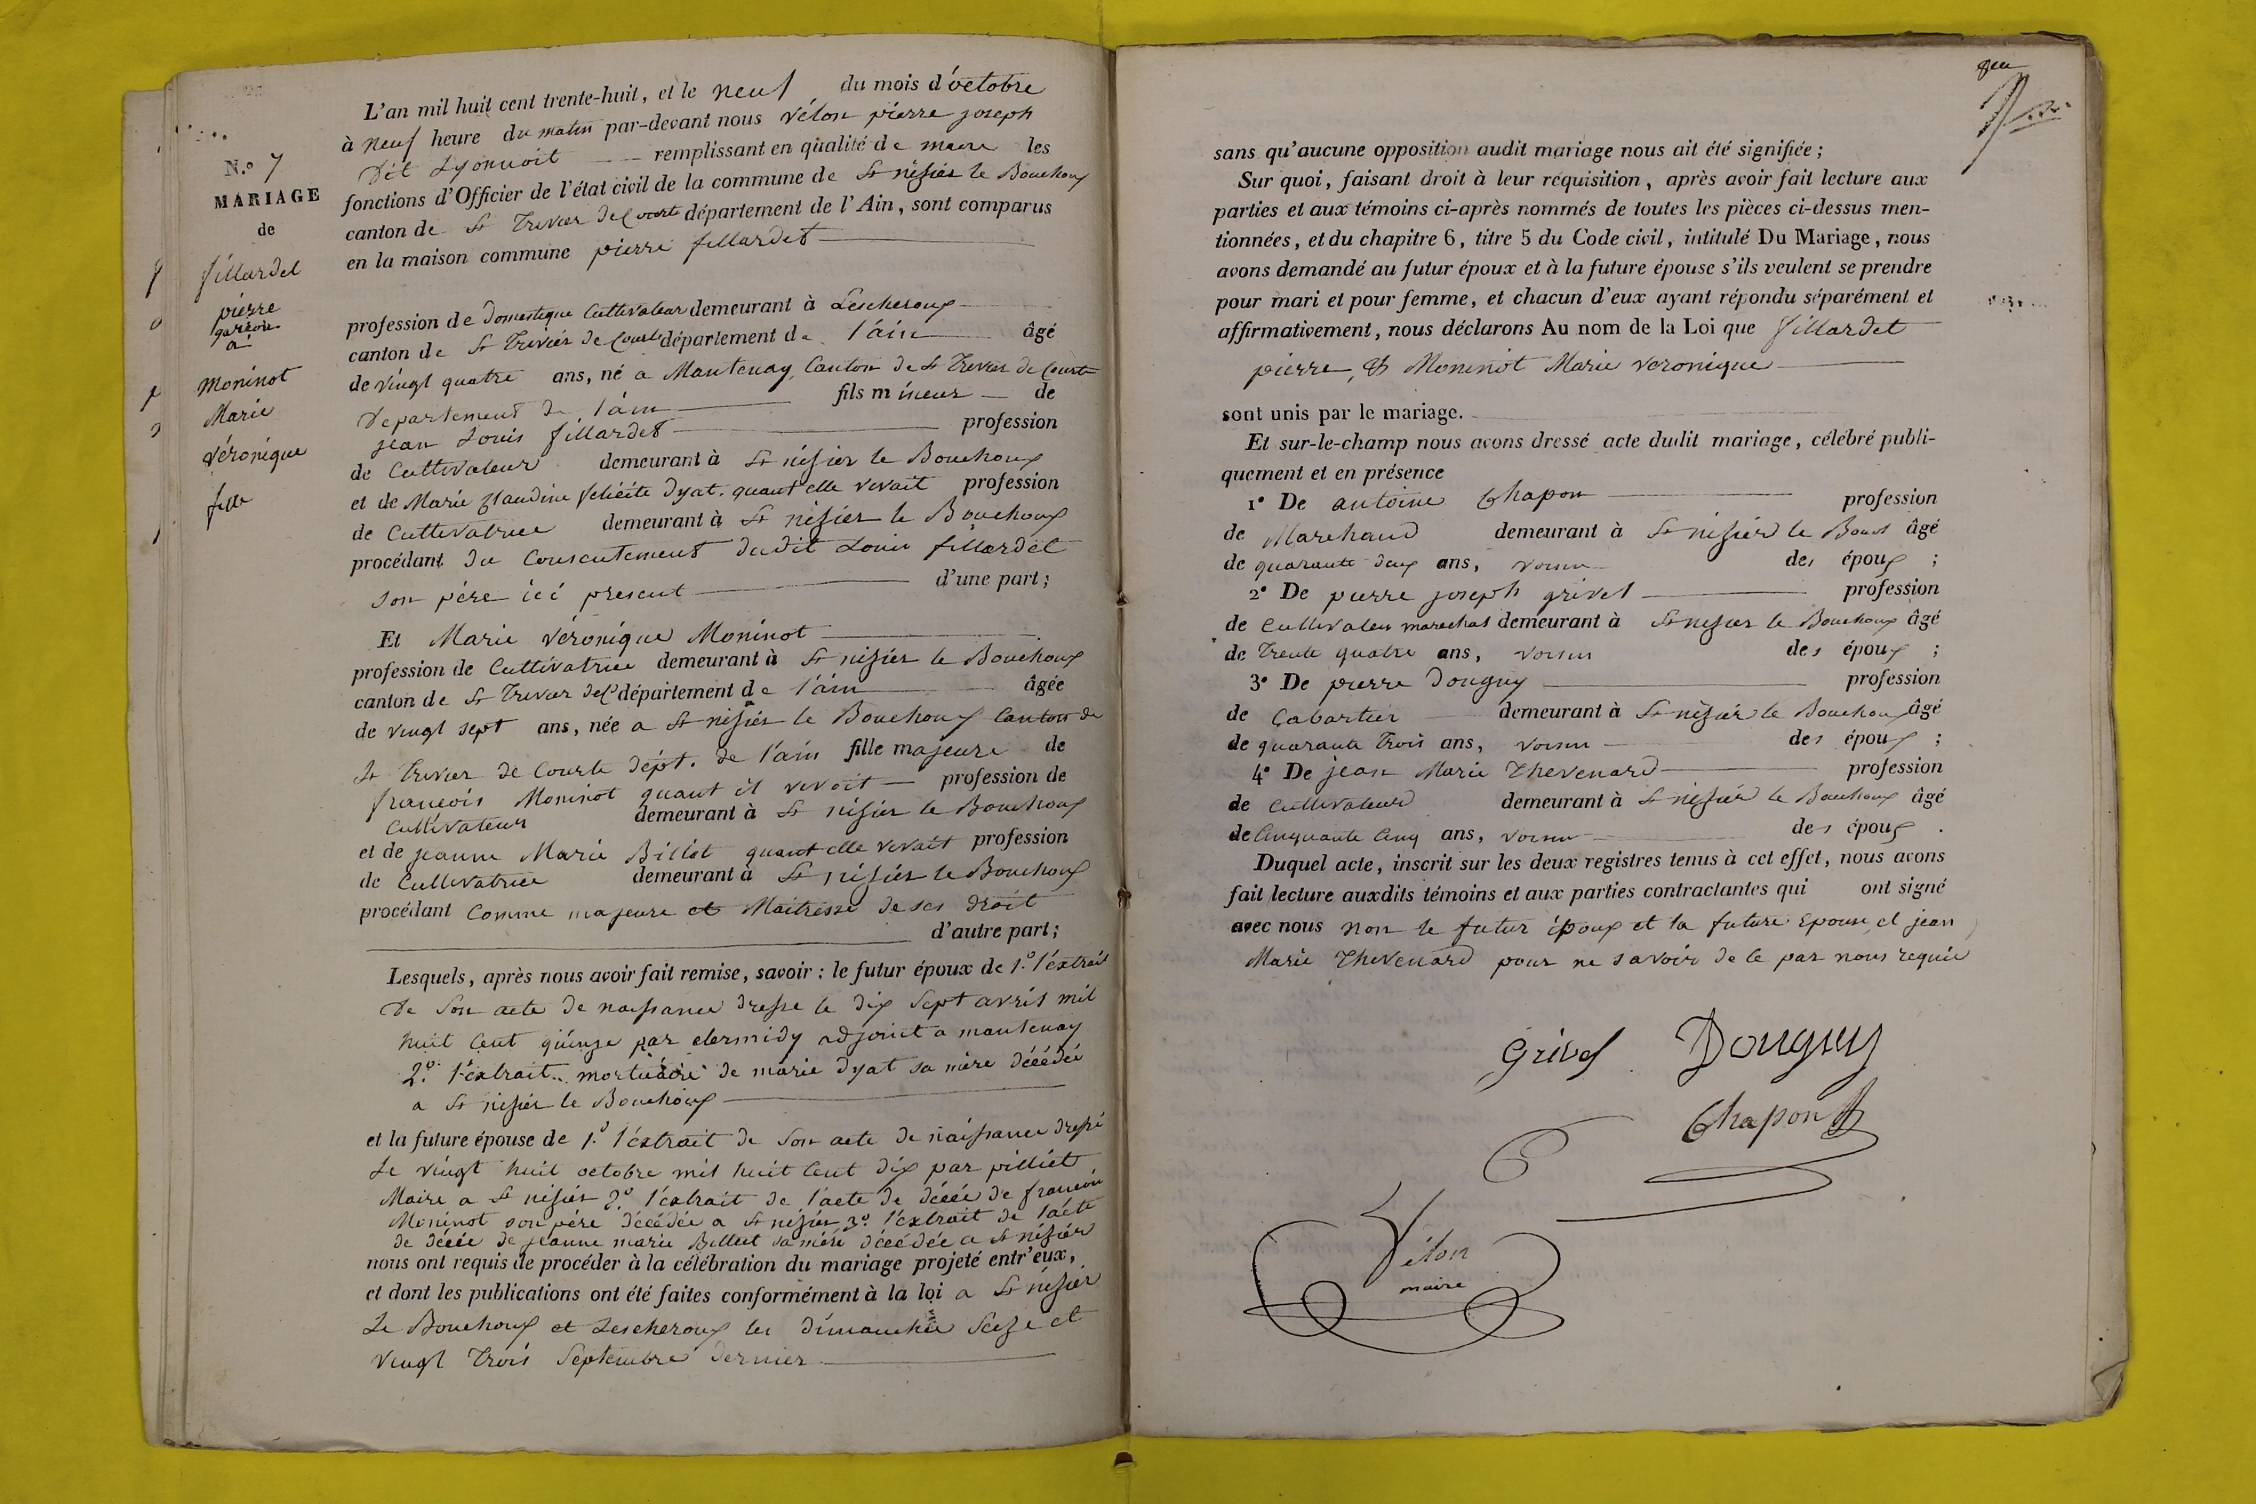 N.o 7
MARIAGE
de
fillardet
pierre
garçon
à
Moninot
Marie
véronique
fille
L'an mil huit cent trente-huit, et le neuf du mois d'octobre
à neuf heure du matin par-devant nous vélon pierre joseph
Dit Lyonnoit remplissant en qualité de maire les
fonctions d'Officier de l'état civil de la commune de St nisier le Bouchoux
canton de St Trivier de Courte département de l'Ain, sont comparus
en la maison commune pierre fillardet
profession de Domestique Cultivateur demeurant à Lescheroux
canton de St Trivier de Courte département de l'ain âgé
de vingt quatre ans, né a Mantenay Canton de St Trivier de Courte
Departement de l'ain fils mineur de
jean Louis fillardet profession
de Cultivateur demeurant à St nisier le Bouchoux
et de Marie Claudine felicite Dyat. quant elle vivait profession
de Cultivatrice demeurant à St nisier le Bouchoux
procédant du Consentement dudit Louis fillardet
son père ici present d'une part;
Et Marie véronique Moninot
profession de Cultivatrice demeurant à St nisier le Bouchoux
canton de St Trivier de C département de l'ain âgée
de vingt sept ans, née a St nisier le Bouchoux Canton de
St Trivier de Courte dépt. de l'ain fille majeure de
francois Moninot quant il vivoit profession de
Cultivateur demeurant à St nisier le Bouchoux
et de jeanne Marie Billet quant elle vivait profession
de Cultivatrice demeurant à St nisier le Bouchoux
procédant Comme majeure et Maitresse de ses droit
d'autre part;
Lesquels, après nous avoir fait remise, savoir: le futur époux de 1.o l'extrait
De Son acte de naissance dresse le dix sept avril mil
huit Cent quinze par clermidy adjoint a mantenay
2.o l'extrait mortuaire de marie dyat sa mère décédée
a St nisier le Bouchoux
et la future épouse de 1.o l'extrait de Son acte de naissance dressé
Le vingt huit octobre mil huit Cent dix par pilliet
Maire a St nisier 2.o l'extrait de l'acte de décé de francoi
Moninot son père décédée a St nisier 3.o l'extrait de l'acte
de décée de jeanne marie Billet sa mère décédée a St nisier
nous ont requis de procéder à la célébration du mariage projeté entr'eux,
et dont les publications ont été faites conformément à la loi a St nisier
Le Bouchoux et Lescheroux les dimanche Seize et
vingt Trois Septembre dernier
sans qu'aucune opposition audit mariage nous ait été signifiée;
Sur quoi, faisant droit à leur réquisition, après avoir fait lecture aux
parties et aux témoins ci-après nommés de toutes les pièces ci-dessus men-
tionnées, et du chapitre 6, titre 5 du Code civil, intitulé Du Mariage, nous
avons demandé au futur époux et à la future épouse s'ils veulent se prendre
pour mari et pour femme, et chacun d'eux ayant répondu séparément et
affirmativement, nous déclarons Au nom de la Loi que fillardet
pierre, et Moninot Marie veronique
sont unis par le mariage.
Et sur-le-champ nous avons dressé acte dudit mariage, célébré publi-
quement et en présence
1o De antoine Chapon profession
de Marchand demeurant à St nisier le Bouch âgé
de quarante deux ans, voisin des époux ;
2o De pierre joseph grivel profession
de Cultivateur marechal demeurant à St nisier le Bouchoux âgé
de Trente quatre ans, voisin des époux ;
3o De pierre Douguy profession
de Cabartier demeurant à St nisier le Bouchoux âgé
de quarante Trois ans, voisin des époux ;
4o De jean Marie Thevenard profession
de Cultivateur demeurant à St nisier le Bouchoux âgé
de Cinquante Cinq ans, voisin des époux .
Duquel acte, inscrit sur les deux registres tenus à cet effet, nous avons
fait lecture auxdits témoins et aux parties contractantes qui ont signé
avec nous non le futur époux et la future Epouse, et jean
Marie Thevenard pour ne savoir de le par nous requis
Grivel Douguy
Chapon
Vélon
maire